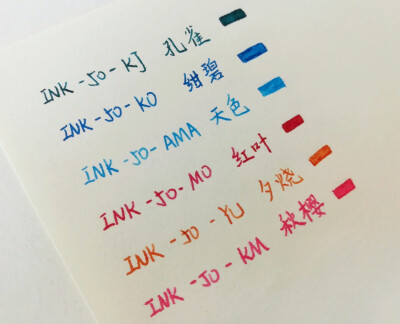 INK-JO-KJ 孔雀
INK-JO-KO 绀碧
INK-JO-AMA 天色
INK-JO-MO 红叶
INK-JO-YU 夕烧
INK-JO-KM 秋樱